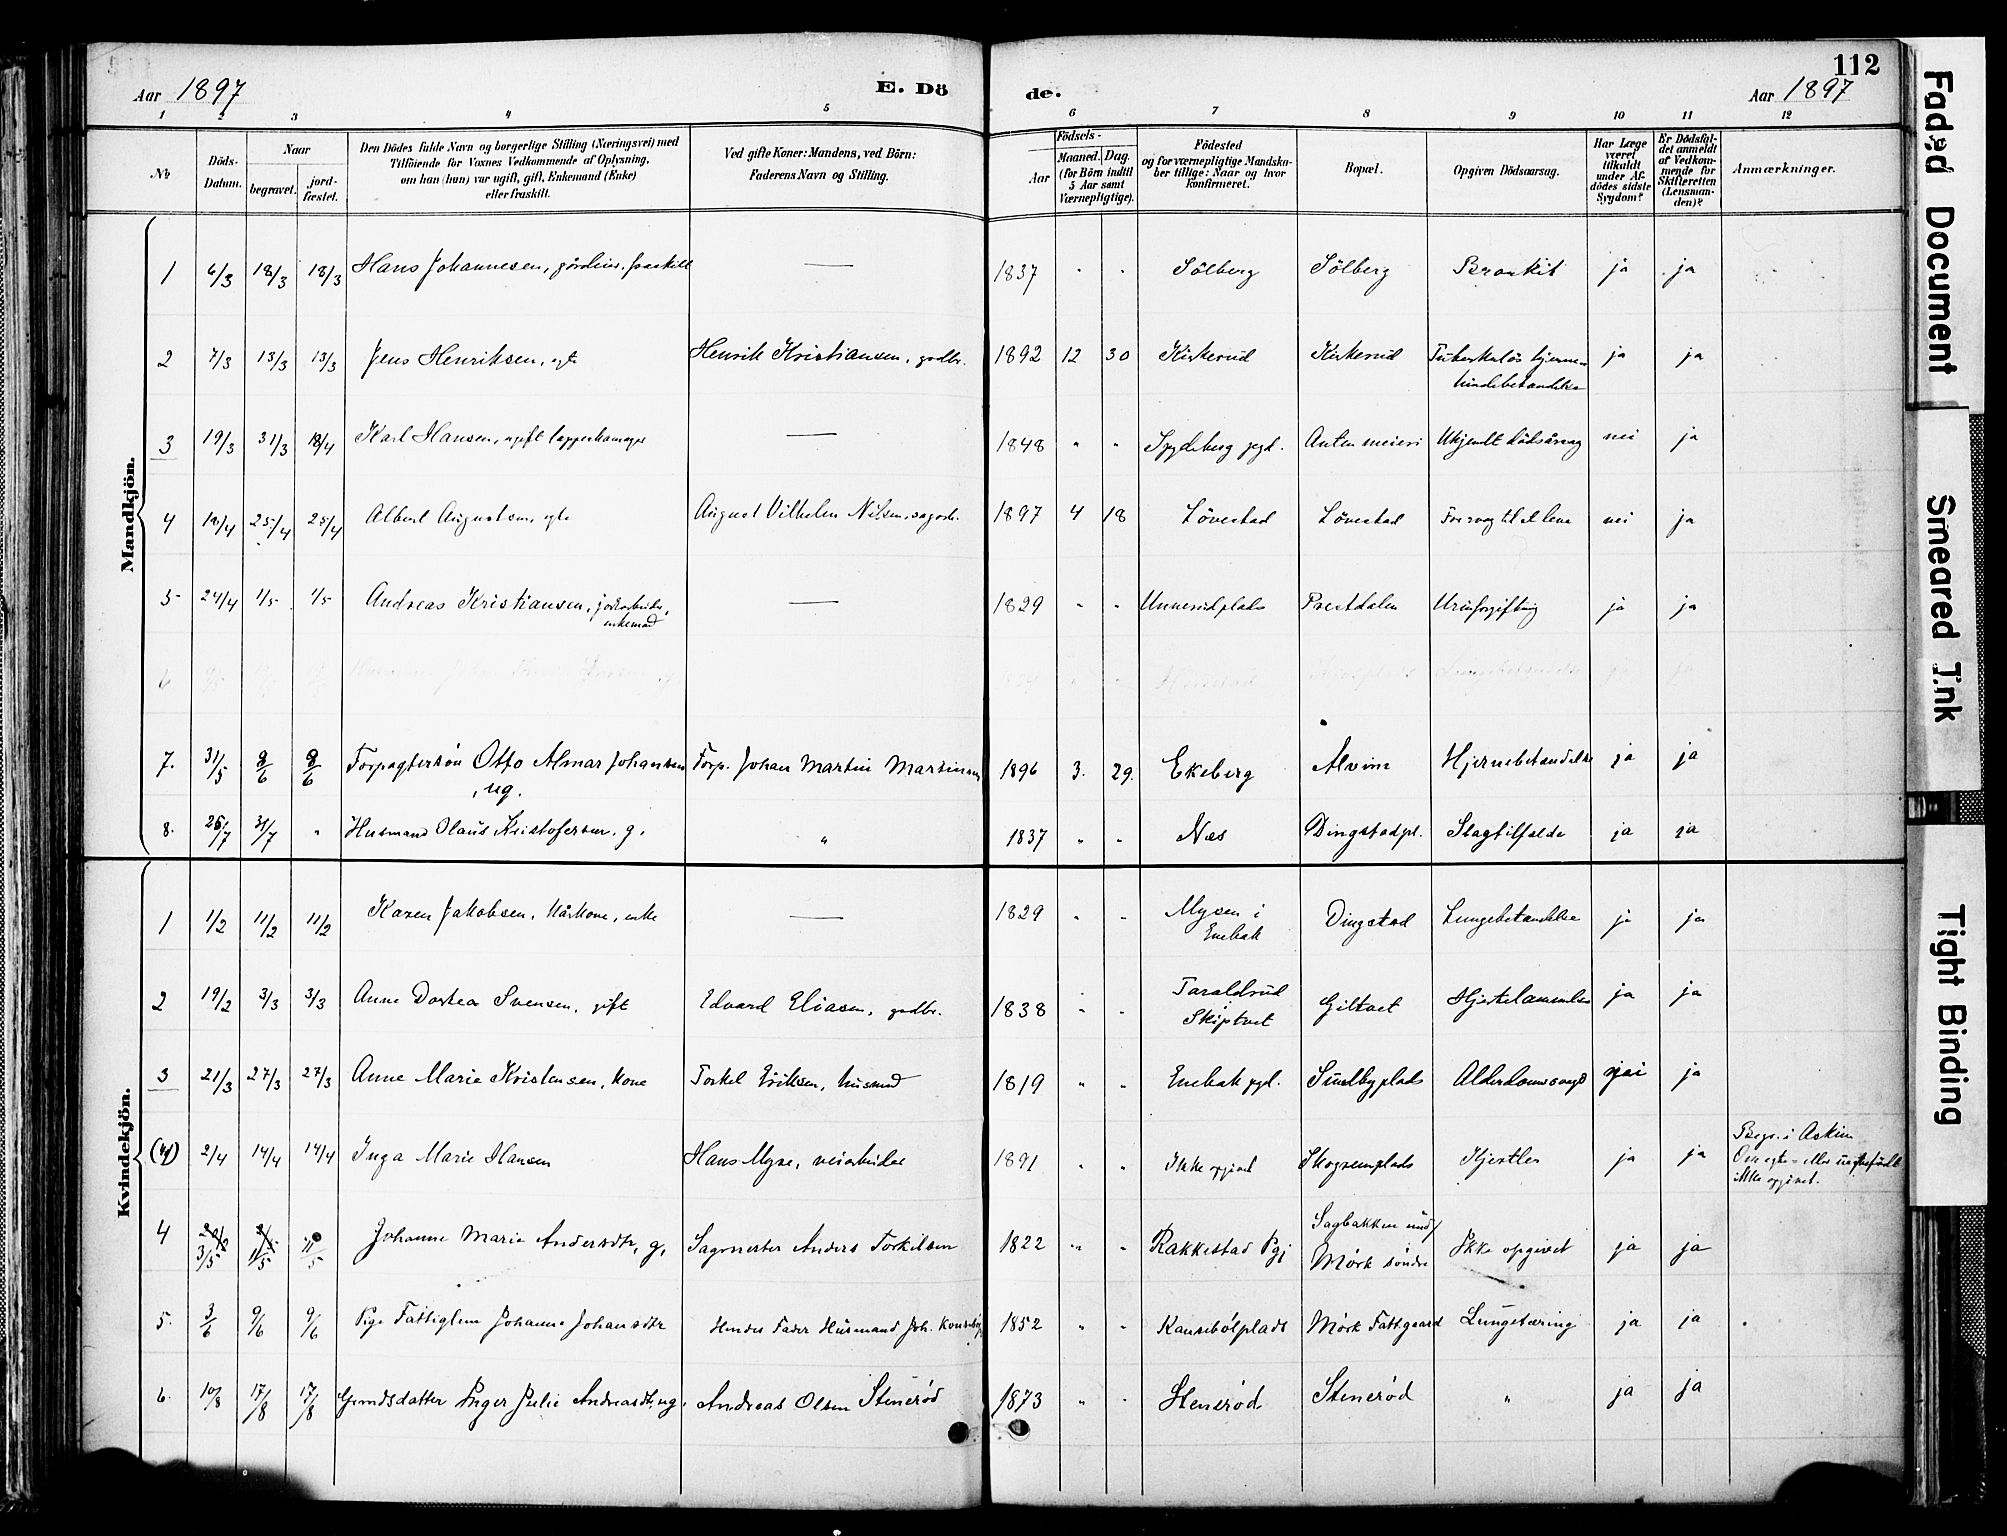 112
Aar 1897 E. Dö de. Aar 1897
1 2 3 4 5 6 7 8 9 10 11 12
No Döds-Datum. Naar begravet. jord-fæstet. Den Dödes fulde Navn og borgerlige Stilling (Næringsvei) med Tilföiende for Voxnes Vedkommende af Oplysning, om han (hun) var ugift, gift, Enkemand (Enke) eller fraskilt. Ved gifte Koner: Mandens, ved Börn: Faderens Navn og Stilling. Födsels- Aar Maaned. Dag. (for Börn indtil 5 Aar samt Værnepligtige). Födested og for værnepligtige Mandskaber tillige: Naar og hvor konfirmeret. Bopæl. Opgiven Dödsaarsag. Har Læge været tilkaldt under Afdödes sidste Sygdom? Er Dödsfaldet anmeldt af Vedkommende for Skifteretten (Lensmanden)? Anmærkninger.
Mandkjön.
1 6/3 18/3 18/3 Hans Johannesen, fraskilt — 1837 " " Sölberg Sölberg Bronkit ja ja
2 7/3 13/3 13/3 Jens Henriksen, egte Henrik Kristiansen, gaardbr. 1892 12 30 Kirkerud Kirkerud Tuberkulös hjernehindebetændelse ja ja
3 19/3 31/3 18/4 Karl Hansen, ugift — 1848 " " Spydeberg pgd. meieri Ukjendt dödsårsag nei ja
4 25/4 25/4 Albert Augustsen, egte August Vilhelm Nilsen, 1897 4 18 Lövestad Lövestad For svag til at leve nei ja
5 24/4 1/5 1/5 Andreas Kristiansen, jordarbeider, enkemand — 1829 " " Unnerudplads Prestdalen Urinforgiftning ja ja
6
7. 31/5 8/6 8/6 Forpagtersön Otto Almar Johansen, ug. Forp. Johan Martin Martinsen 1896 3. 29. Ekeberg Alvim Hjernebetændelse ja ja
8. 26/7 31/7 " Husmand Olaus Kristofersen, g. " 1837 " " Næs Dingstadpl. Slagtilfælde ja ja
Kvindekjön.
1 1/2 11/2 11/2 Karen Jakobsen, kårkone, enke — 1829 " " Mysen i Enebak Dingstad Lungebetændelse ja ja
2 19/2 3/3 3/3 Anne Dortea Svensen, gift Edvard Eliasen, gardbr. 1838 " " Taraldrud i Skiptvet Giltvet Hjertelammelse ja ja
3 21/3 27/3 27/3 Anne Marie Kristensen, kone Torkel Eriksen, husmand 1819 " " Enebak pgd. Sundbyplads Alderdomssvaghed ja
(4) 2/4 14/4 14/4 Inga Marie Hansen Hans Myre, veiarbeider 1891 " " Ikke opgivet Skogrenplads Hjertlen ja ja Begr. i Askim Om egte- eller uegtefödt ikke opgivet.
4 3/5 11/5 11/5 Johanne Marie Andersdtr, g, Sagmester Anders Torkilsen 1822 " " Rakkestad Pgj Sagbakken und/ Mörk söndre Ikke opgivet ja ja
5. 3/6 9/6 9/6 Pige Fattiglem Johanne Johansdtr Hendes Fader Husmand Joh. 1852 " " Kansebölplads Mörk Fattgaard Lungetæring ja ja
6. 10/8 17/8 17/8 Grmdsdatter Inger Julie Andreasdtr, ug. Andreas Olsen Stenerød 1873 " " Stenerød Stenerød " ja ja
Faded Document
Smeared Ink
Tight Binding